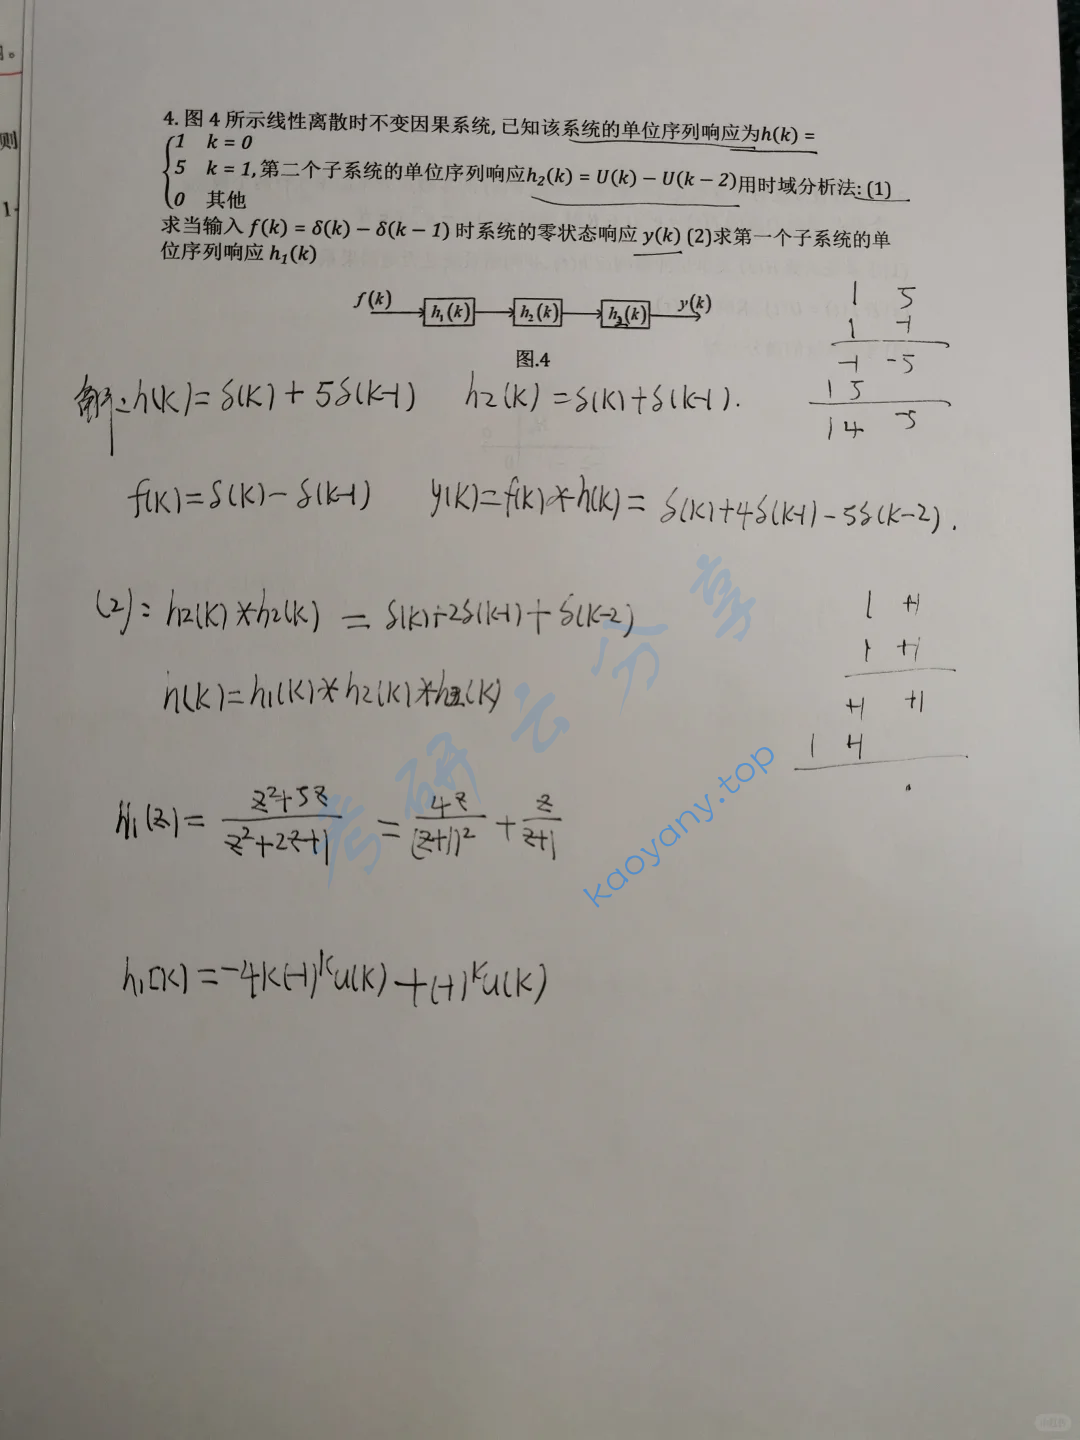 则
1.
4. 图 4 所示线性离散时不变因果系统, 已知该系统的单位序列响应为h(k) =
{1 k = 0
5 k = 1, 第二个子系统的单位序列响应h₂(k) = U(k) − U(k − 2)用时域分析法: (1)
0 其他
求当输入 f(k) = δ(k) − δ(k − 1) 时系统的零状态响应 y(k) (2)求第一个子系统的单
位序列响应 h₁(k)
f(k) h₁(k) h₂(k) h₂(k) y(k)
图.4
1 5
1 -1
-1 -5
1 5
1 4 -5
解: h(k) = δ(k) + 5δ(k-1) h2(k) = δ(k) + δ(k-1).
f(k) = δ(k) - δ(k-1) y(k) = f(k) * h(k) = δ(k)+4δ(k-1) - 5δ(k-2).
(2): h2(k) * h2(k) = δ(k)+2δ(k-1) + δ(k-2)
1 +1
1 +1
+1 +1
1 +1
h(k) = h1(k) * h2(k) * h2(k)
H1(z) = (z²+5z)/(z²+2z+1) = 4z/(z+1)² + z/(z+1)
h1[k) = -4k(-1)^k u(k) + (-1)^k u(k)
考研云分享
kaoyany.top